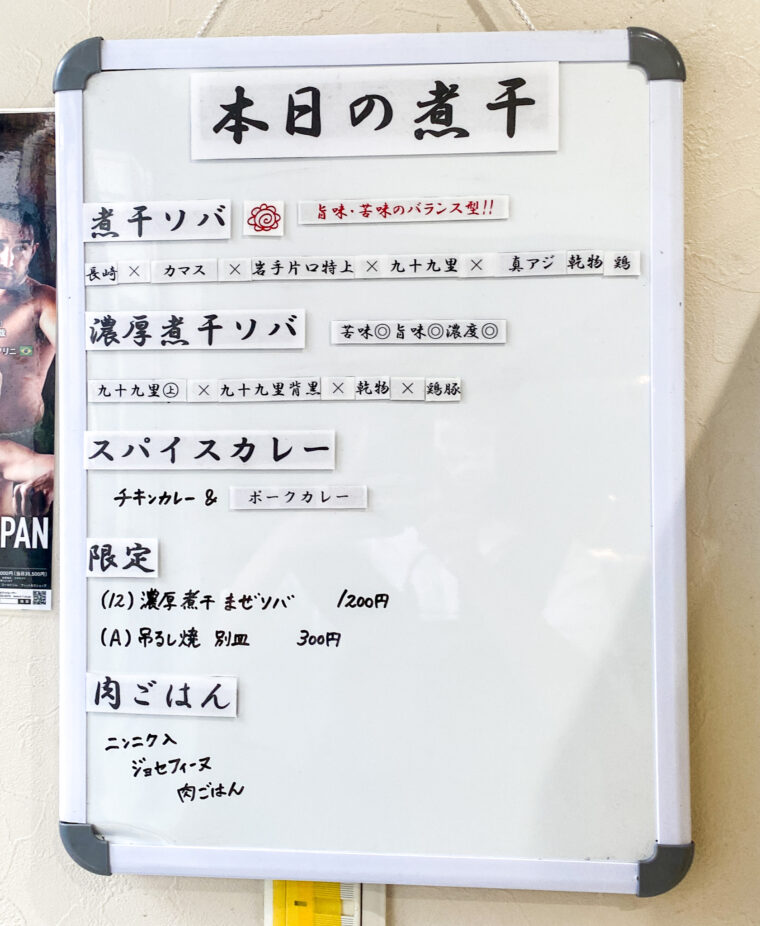 本日の煮干
煮干ソバ 旨味・苦味のバランス型!!
長崎 × カマス × 岩手片口特上 × 九十九里 × 真アジ 乾物 鶏
濃厚煮干ソバ 苦味◎旨味◎濃度◎
九十九里㊤ × 九十九里背黒 × 乾物 × 鶏豚
スパイスカレー
チキンカレー & ポークカレー
限定
(12) 濃厚煮干 まぜソバ 1200円
(A) 吊るし焼 別皿 300円
肉ごはん
ニンニク入
ジョセフィーヌ
肉ごはん
PAN